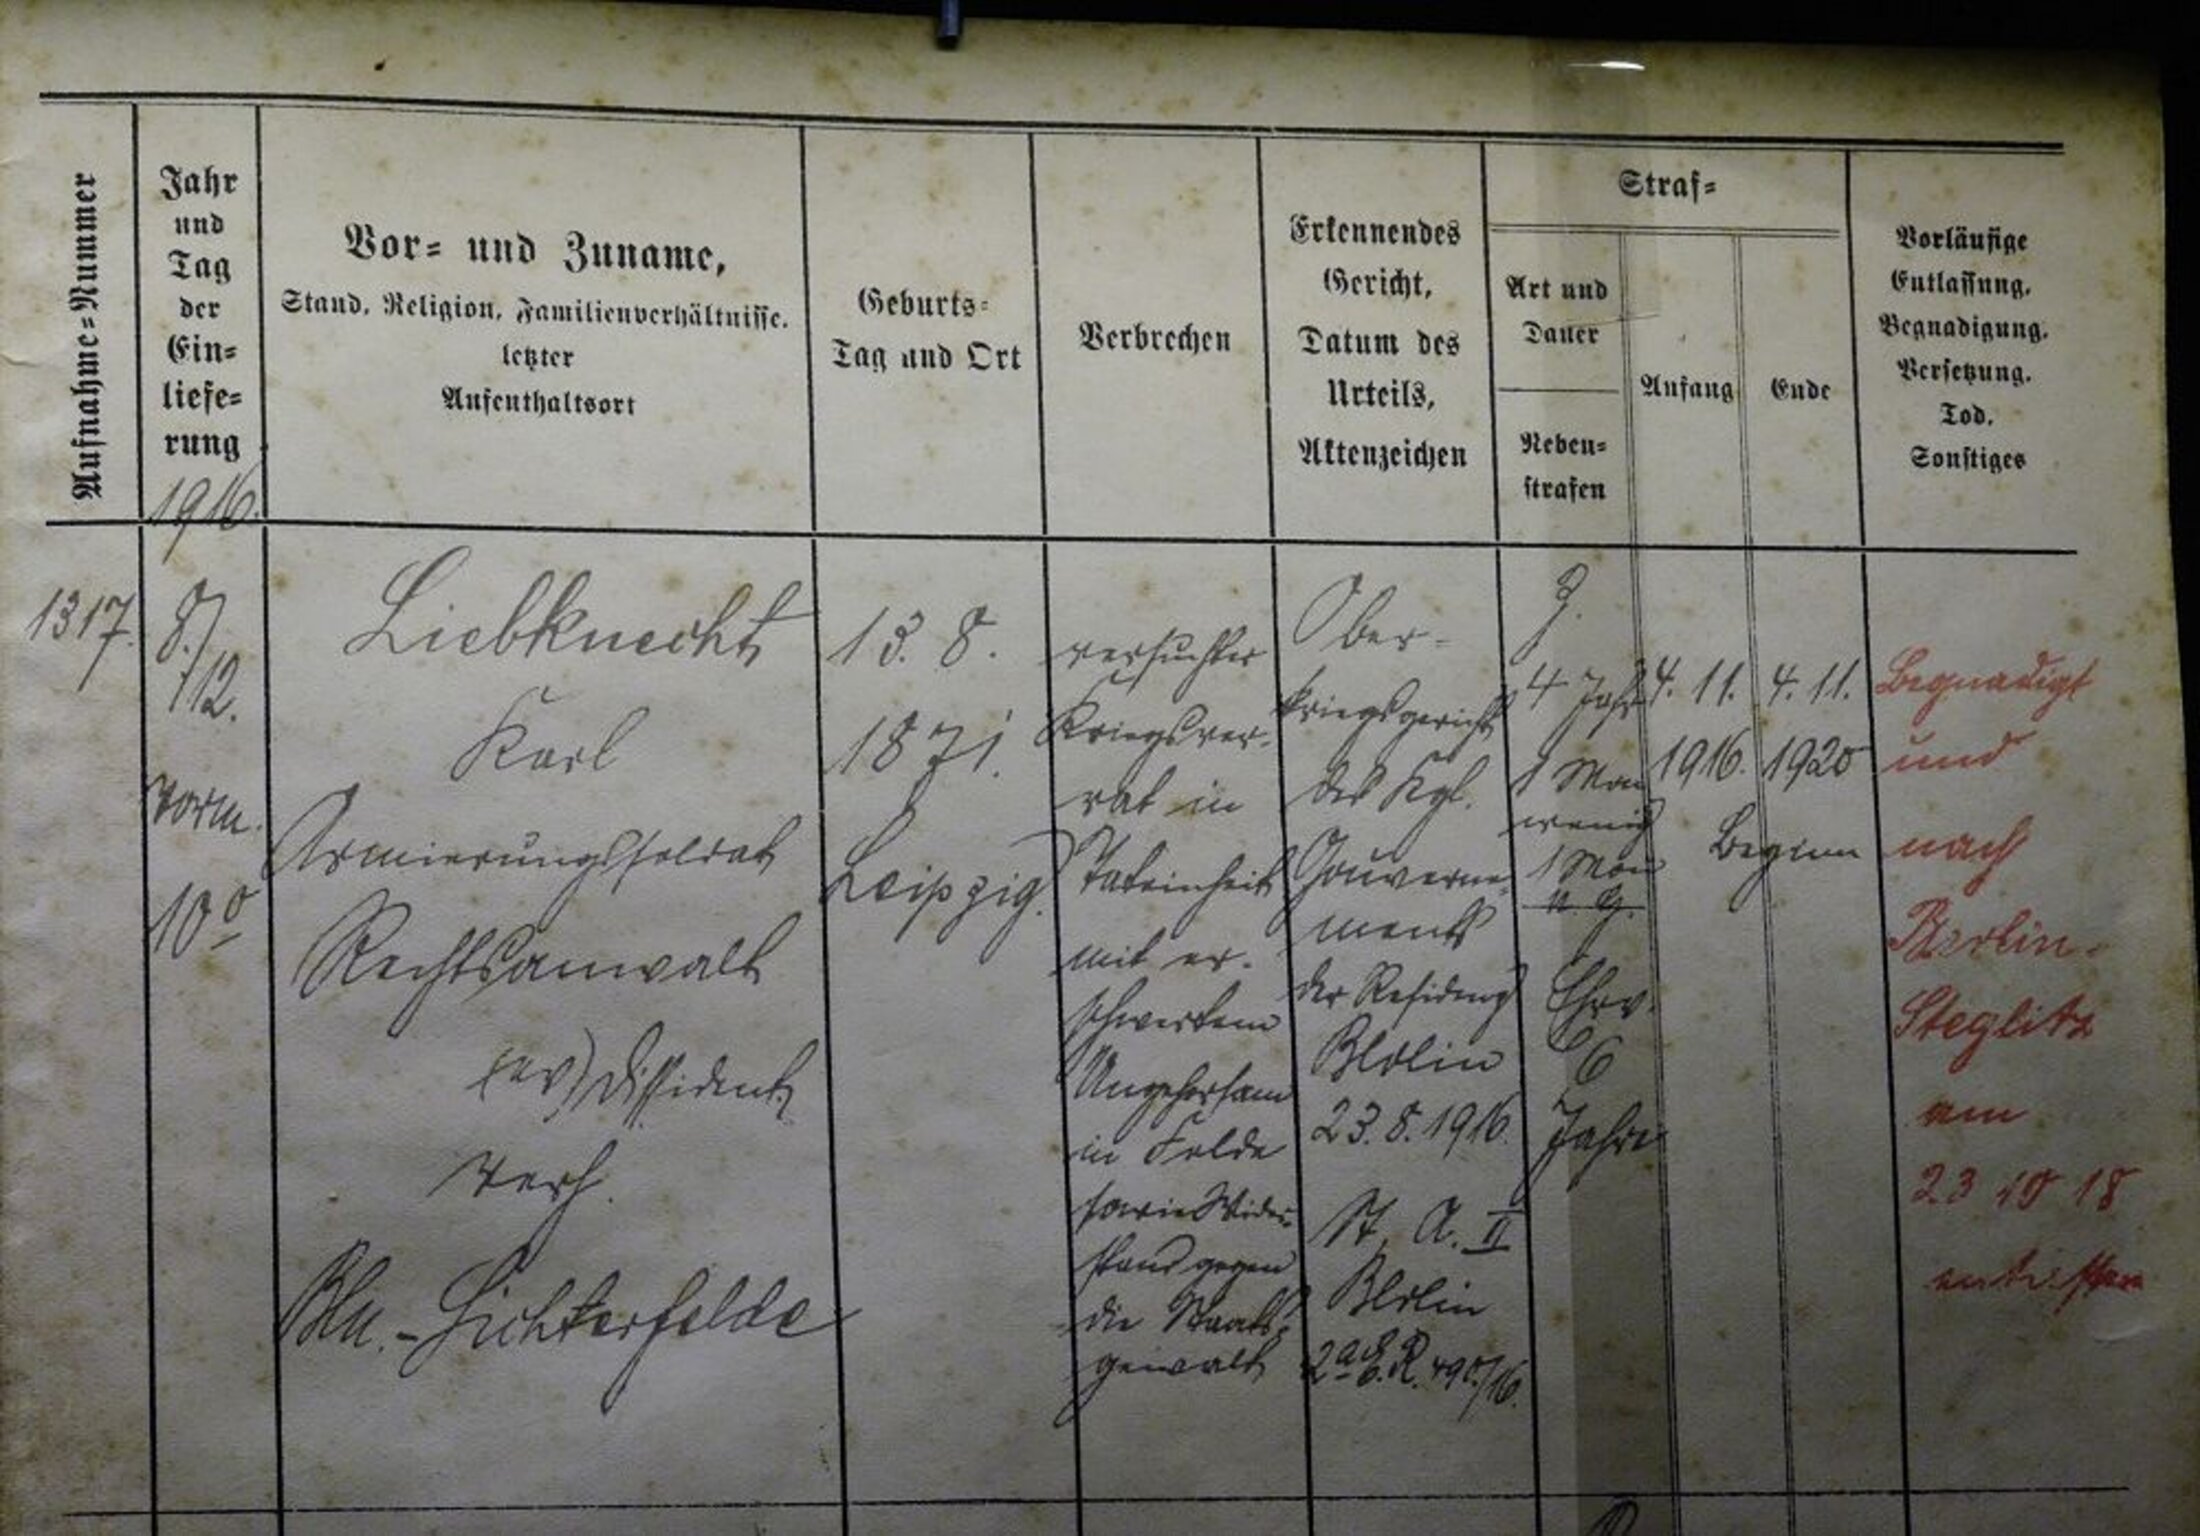 Aufnahme=Nummer
Jahr
und
Tag
der
Ein=
liefe=
rung
1916.
Vor= und Zuname,
Stand, Religion, Familienverhältnisse,
letzter
Aufenthaltsort
Geburts=
Tag und Ort
Verbrechen
Erkennendes
Gericht,
Datum des
Urteils,
Aktenzeichen
Straf=
Art und
Dauer
Neben=
strafen
Anfang
Ende
Vorläufige
Entlassung,
Begnadigung,
Versetzung,
Tod,
Sonstiges
1317.
8./
12.
Vorm.
10⁰
Liebknecht
Karl
Armierungssoldat
Rechtsanwalt
(ev) Dissident
verh.
Bln.-Lichterfelde
13. 8.
1871.
Leipzig.
versuchter
Kriegsver-
rat in
Tateinheit
mit er-
schwertem
Ungehorsam
in Felde
sowie Wider-
stand gegen
die Staats-
gewalt
Ober-
kriegsgericht
des Kgl.
Gouverne-
ments
der Residenz
Berlin
23. 8. 1916.
St. A. II
Berlin
2a E.R. 490/16.
Z.
4 Jahr
1 Mon
wenig
1 Mon
u. G.
Ehrv.
6
Jahre
4. 11.
1916.
4. 11.
1920
Beginn
Begnadigt
und
nach
Berlin-
Steglitz
am
23 10 18
entlassen